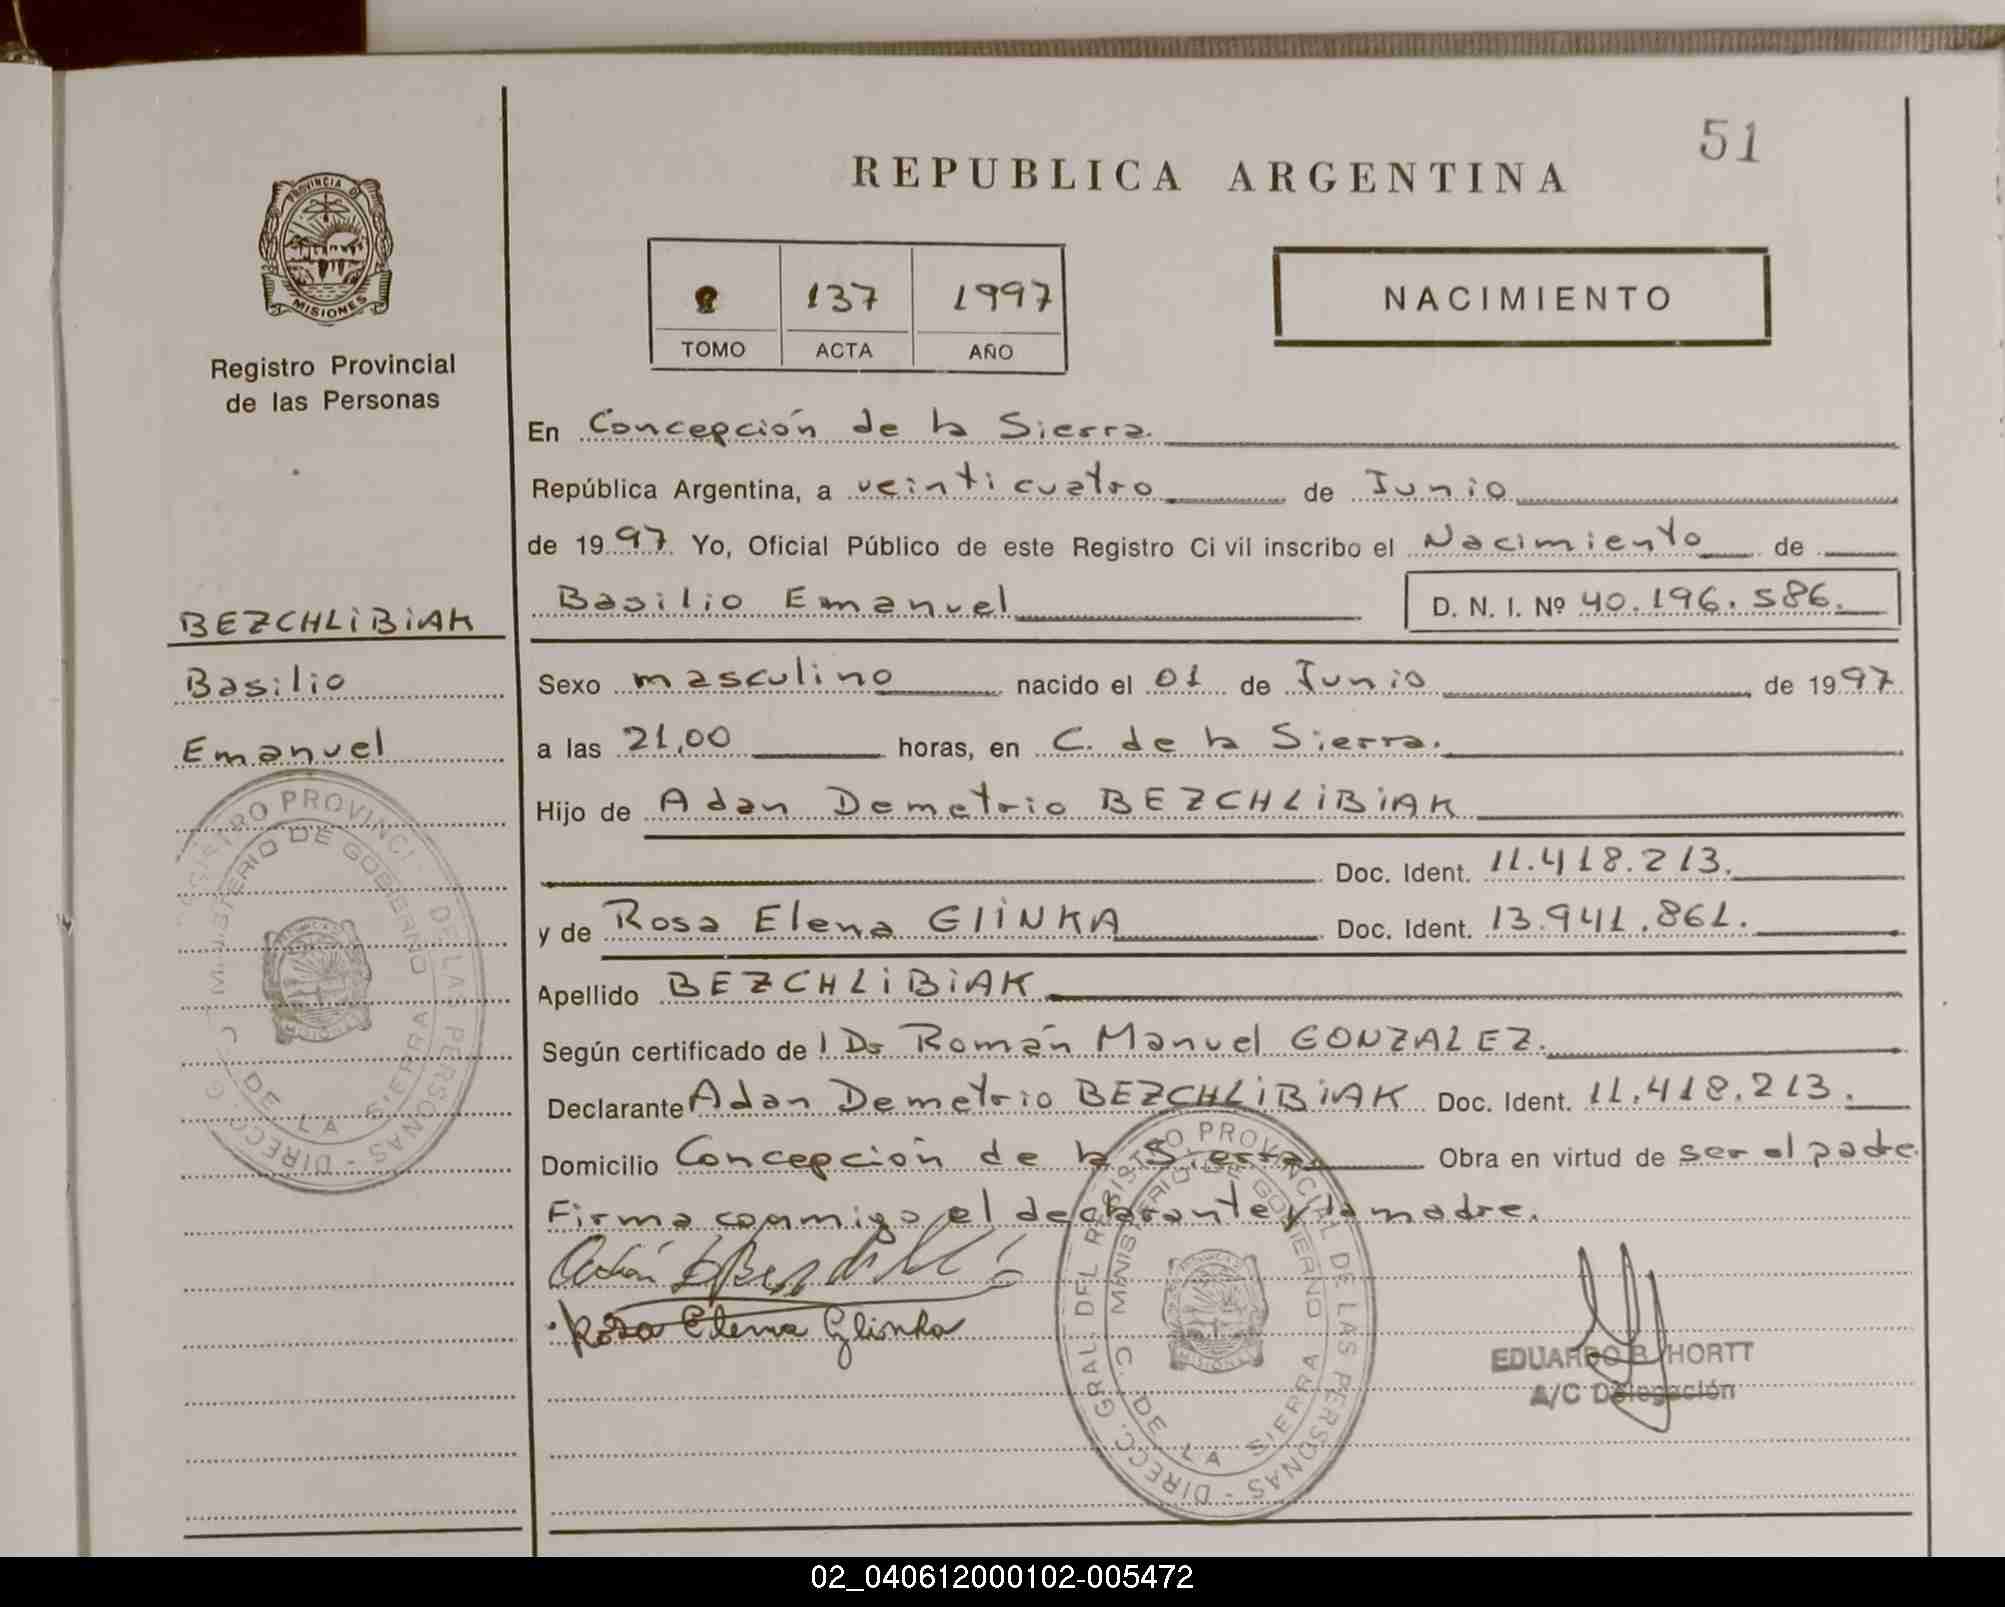 51
REPUBLICA ARGENTINA
PROVINCIA DE
MISIONES
137 1997
TOMO ACTA AÑO
NACIMIENTO
Registro Provincial
de las Personas
En Concepción de la Sierra.
República Argentina, a veinticuatro de Junio
de 1997. Yo, Oficial Público de este Registro Civil inscribo el Nacimiento de
Basilio Emanuel D. N. I. Nº 40.196.586.
BEZCHLIBIAK
Basilio
Emanuel
Sexo masculino nacido el 01 de Junio, de 1997
a las 21,00 horas, en C. de la Sierra.
Hijo de Adan Demetrio BEZCHLIBIAK
Doc. Ident. 11.418.213.
y de Rosa Elena GlINKA Doc. Ident. 13.941.861.
Apellido BEZCHLIBIAK
Según certificado de l Dr Román Manuel GONZALEZ.
Declarante Adan Demetrio BEZCHLIBIAK Doc. Ident. 11.418.213.
Domicilio Concepción de la Sierra Obra en virtud de ser el padre
Firma conmigo el declarante y la madre.
Rosa Elena Glinka
DIRECC. GRAL. DEL REGISTRO PROVINCIAL DE LAS PERSONAS
MINISTERIO DE GOBIERNO
C. DE LA SIERRA
MISIONES
EDUARDO B. HORTT
A/C Delegación
REGISTRO PROVINCIAL DE LAS PERSONAS - DIRECC. G
MINISTERIO DE GOBIERNO
C. DE LA SIERRA
02_040612000102-005472